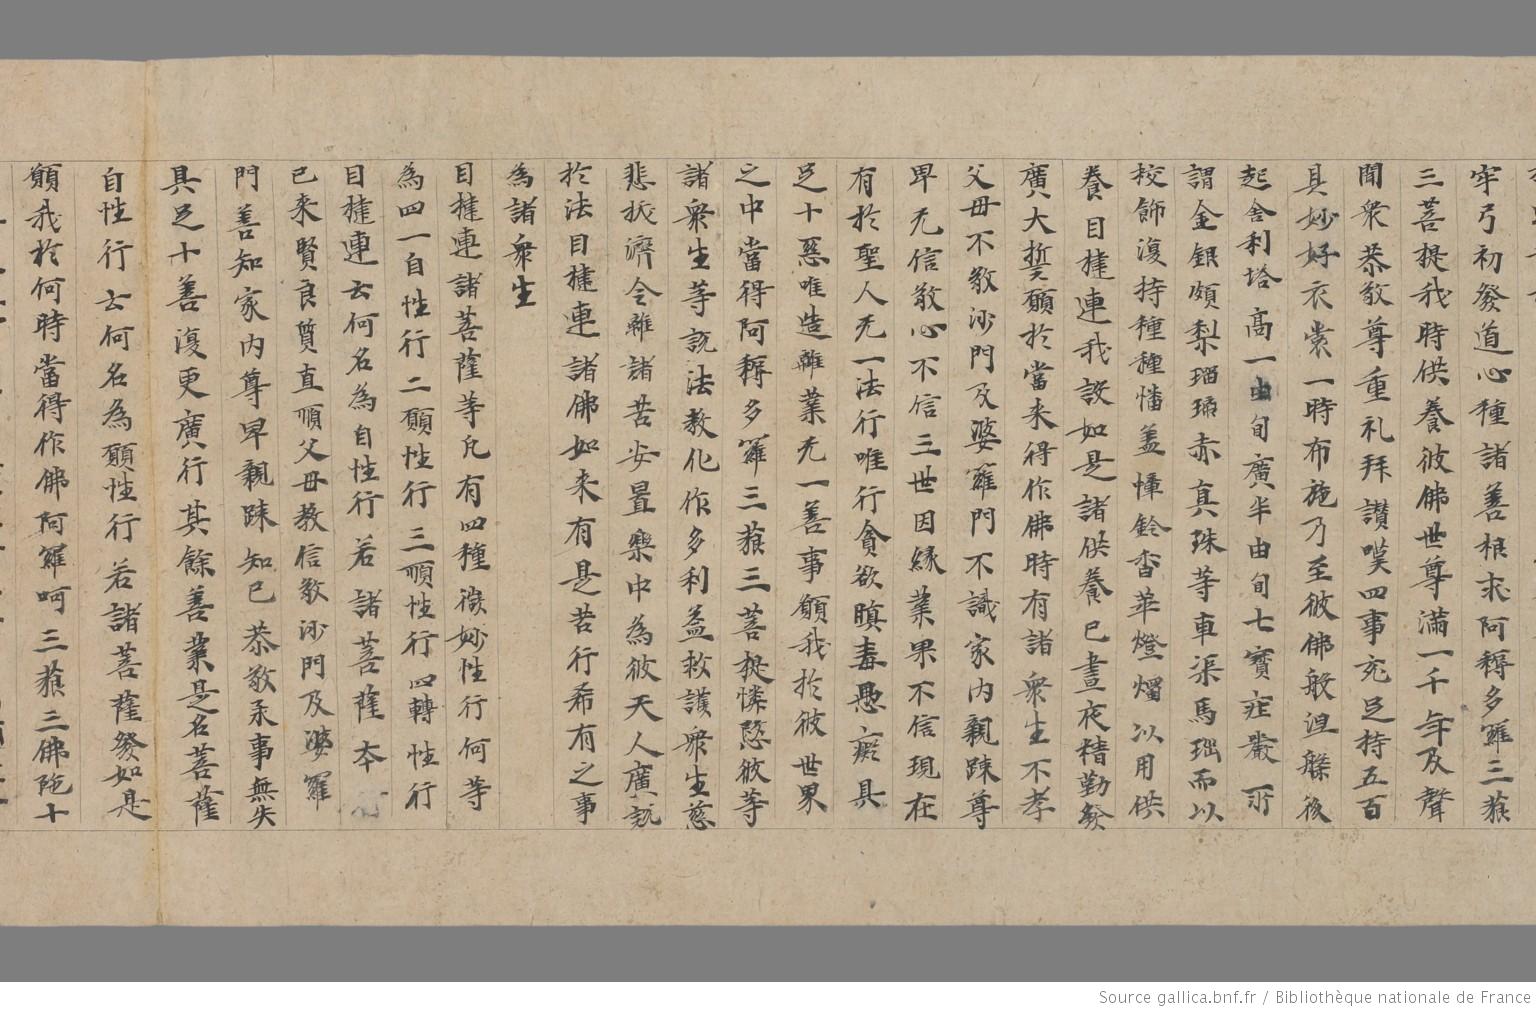 牢弓初發道心種諸善根求阿耨多羅三藐
三菩提我時供養彼佛世尊滿一千年及聲
聞衆恭敬尊重礼拜讃嘆四事充足持五百
具妙好衣裳一時布施乃至彼佛般涅槃後
起舍利塔高一由旬廣半由旬七寳庄嚴所
謂金銀頗梨瑠璃赤真珠等車渠馬瑙而以
校飾復持種種幡盖幢鈴香華燈燭以用供
養目揵連我設如是諸供養已晝夜精勤發
廣大誓願於當来得作佛時有諸衆生不孝
父母不敬沙門及婆羅門不識家内親踈尊
卑无信敬心不信三世因緣業果不信現在
有於聖人无一法行唯行貪欲瞋恚愚癡具
足十惡唯造雜業无一善事願我於彼世界
之中當得阿耨多羅三藐三菩提憐愍彼等
諸衆生等説法教化作多利益救護衆生慈
悲拔濟令離諸苦安置樂中為彼天人廣説
於法目揵連諸佛如来有是苦行希有之事
為諸衆生
目揵連諸菩薩等凡有四種微妙性行何等
為四一自性行二願性行三順性行四轉性行
目揵連云何名為自性行若諸菩薩本
已来賢良質直順父母教信敬沙門及婆羅
門善知家内尊卑親踈知已恭敬承事無失
具足十善復更廣行其餘善業是名菩薩
自性行云何名為願性行若諸菩薩發如是
願我於何時當得作佛阿羅呵三藐三佛陀十
Source gallica.bnf.fr / Bibliothèque nationale de France